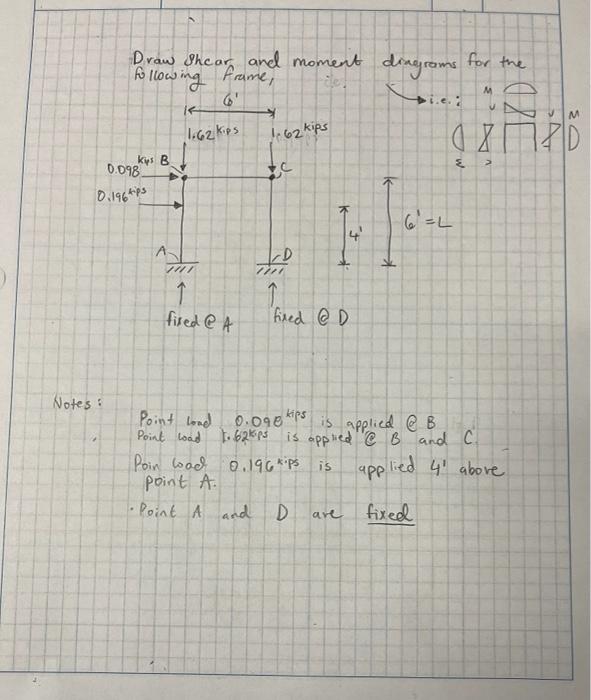 Draw shear and moment diagrams for the
following frame,
i.e.:
M
V
V M
M
V
6'
1.62 kips
1.62 kips
0.098 kips B
C
0.196 kips
4'
6' = L
A
D
fixed @ A
fixed @ D
Notes:
Point load 0.098 kips is applied @ B
Point load 1.62 kips is applied @ B and C.
Poin load 0.196 kips is applied 4' above
point A.
• Point A and D are fixed